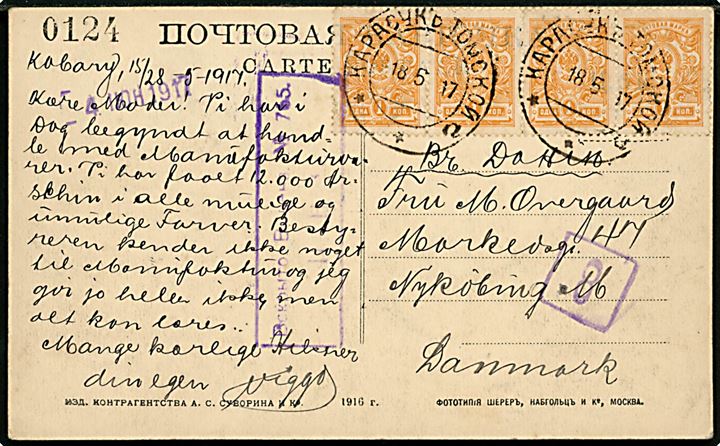 0124 ПОЧТОВАЯ
CARTE
Kobary, 15/28 5-1917.
Kære Moder! Vi har i
Dag begyndt at hand-
le med Manufakturva-
rer. Vi har faaet 12.000 Ar-
schin i alle mulige og
umulige Farver. Besty-
reren kender ikke noget
til Manufaktur og jeg
gør jo heller ikke, men
alt kan læres.
Mange kærlige Hilsner
din egen Viggo
4 ИЮН 1917
№ 765.
КАРАСУКЪ ТОМСКОЙ
18 5 17
КАРАСУКЪ ТОМСКОЙ
18 5 17
Fru M. Overgaard
Markedsg. 47
Nykøbing M
Danmark
ИЗД. КОНТРАГЕНТСТВА А. С. СУВОРИНА И Кº. 1916 г.
ФОТОТИПІЯ ШЕРЕРЪ, НАБГОЛЬЦЪ И Кº, МОСКВА.